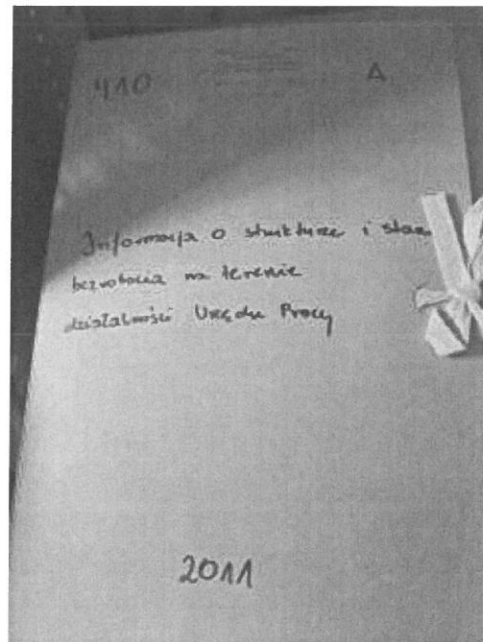 410 A
Informacja o strukturze i stan
bezrobocia na terenie
działalności Urzędu Pracy
2011